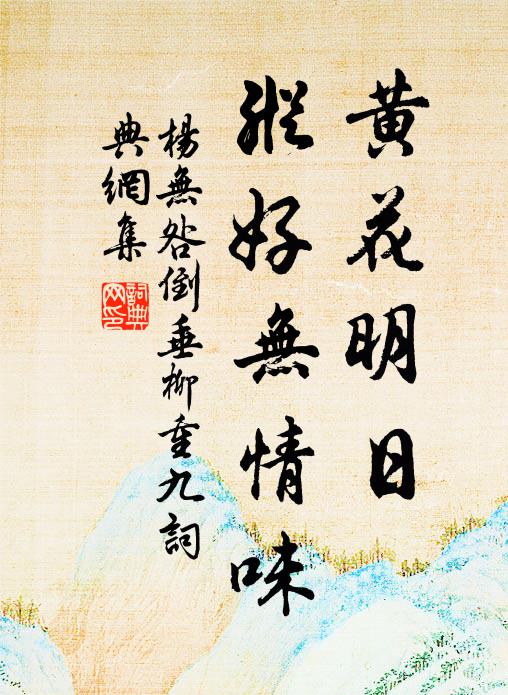 黄花明日
縱好無情味
楊無咎倒垂柳重九詞
典網集
詞典
网印